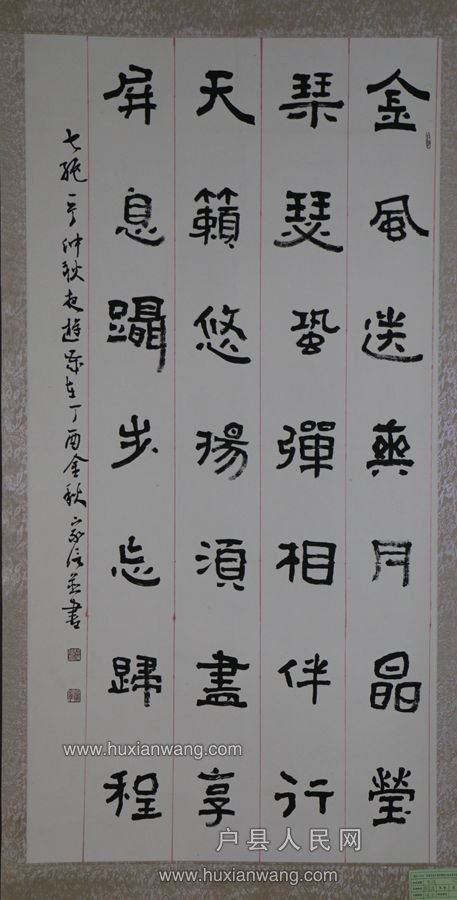 金風送爽月晶瑩
琹瑟蛩彈相伴行
天籟悠揚須盡享
屏息躡步忘歸程
七絕一首仲秋夜遊 歲在丁酉金秋 家信並書
www.huxianwang.com
www.huxianwang.com
户县人民网
www.huxianwang.com